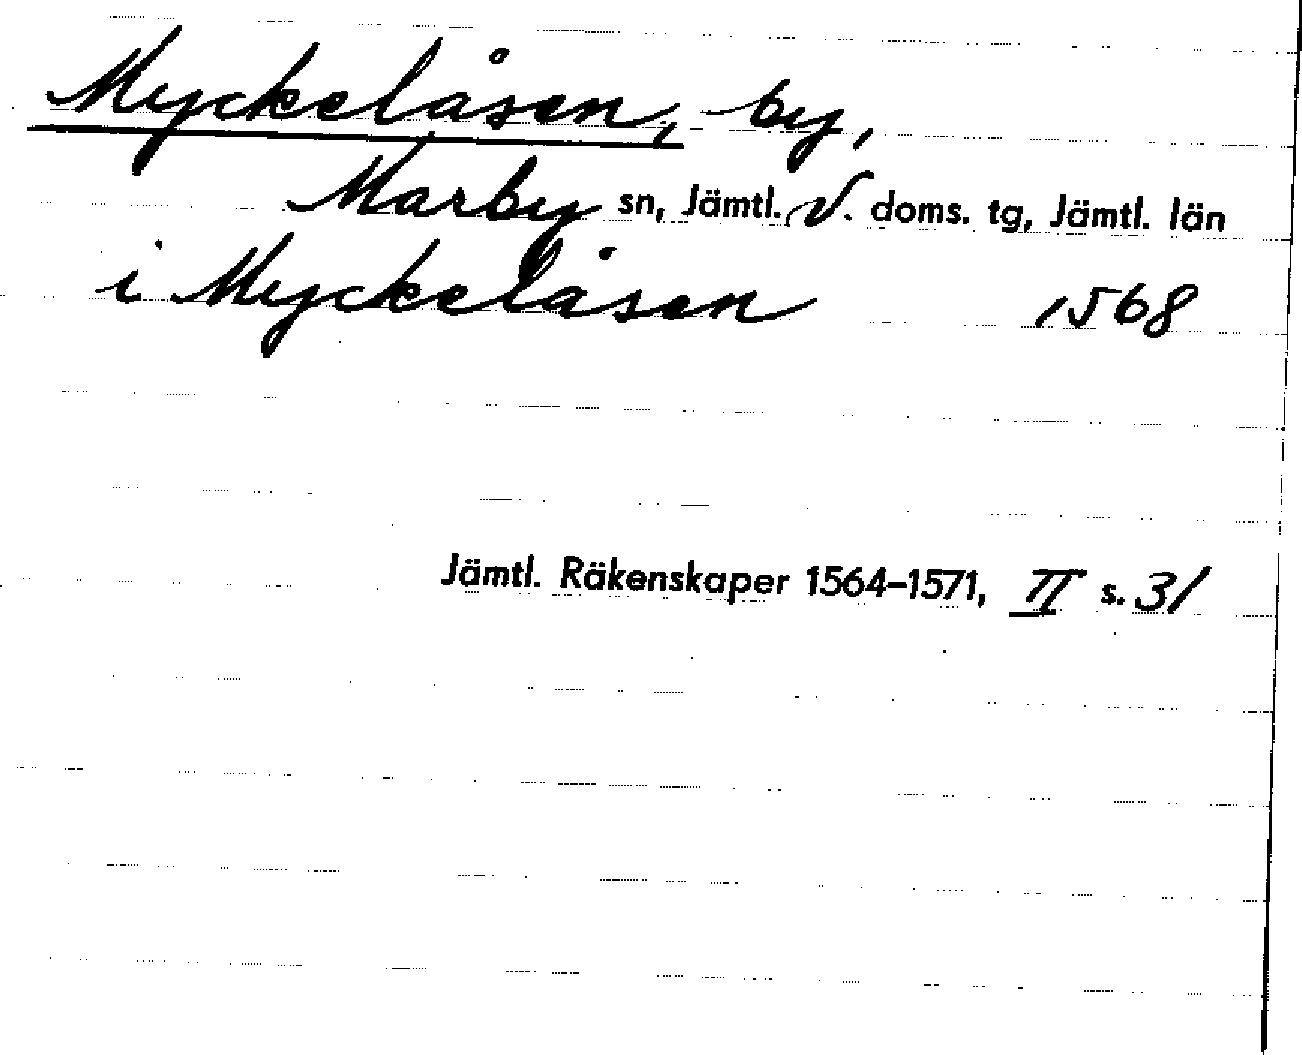 Myckelåsen, by,
Marby sn, Jämtl. V. doms. tg, Jämtl. län
i Myckelåsen 1568
Jämtl. Räkenskaper 1564–1571, II s. 31